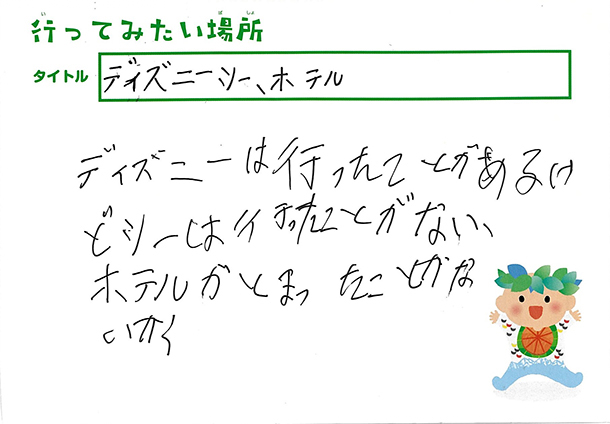 行ってみたい場所
タイトル ディズニーシー、ホテル
ディズニーは行ったことがあるけ
どシーは行ったことがない、
ホテルがとまったことがな
いから